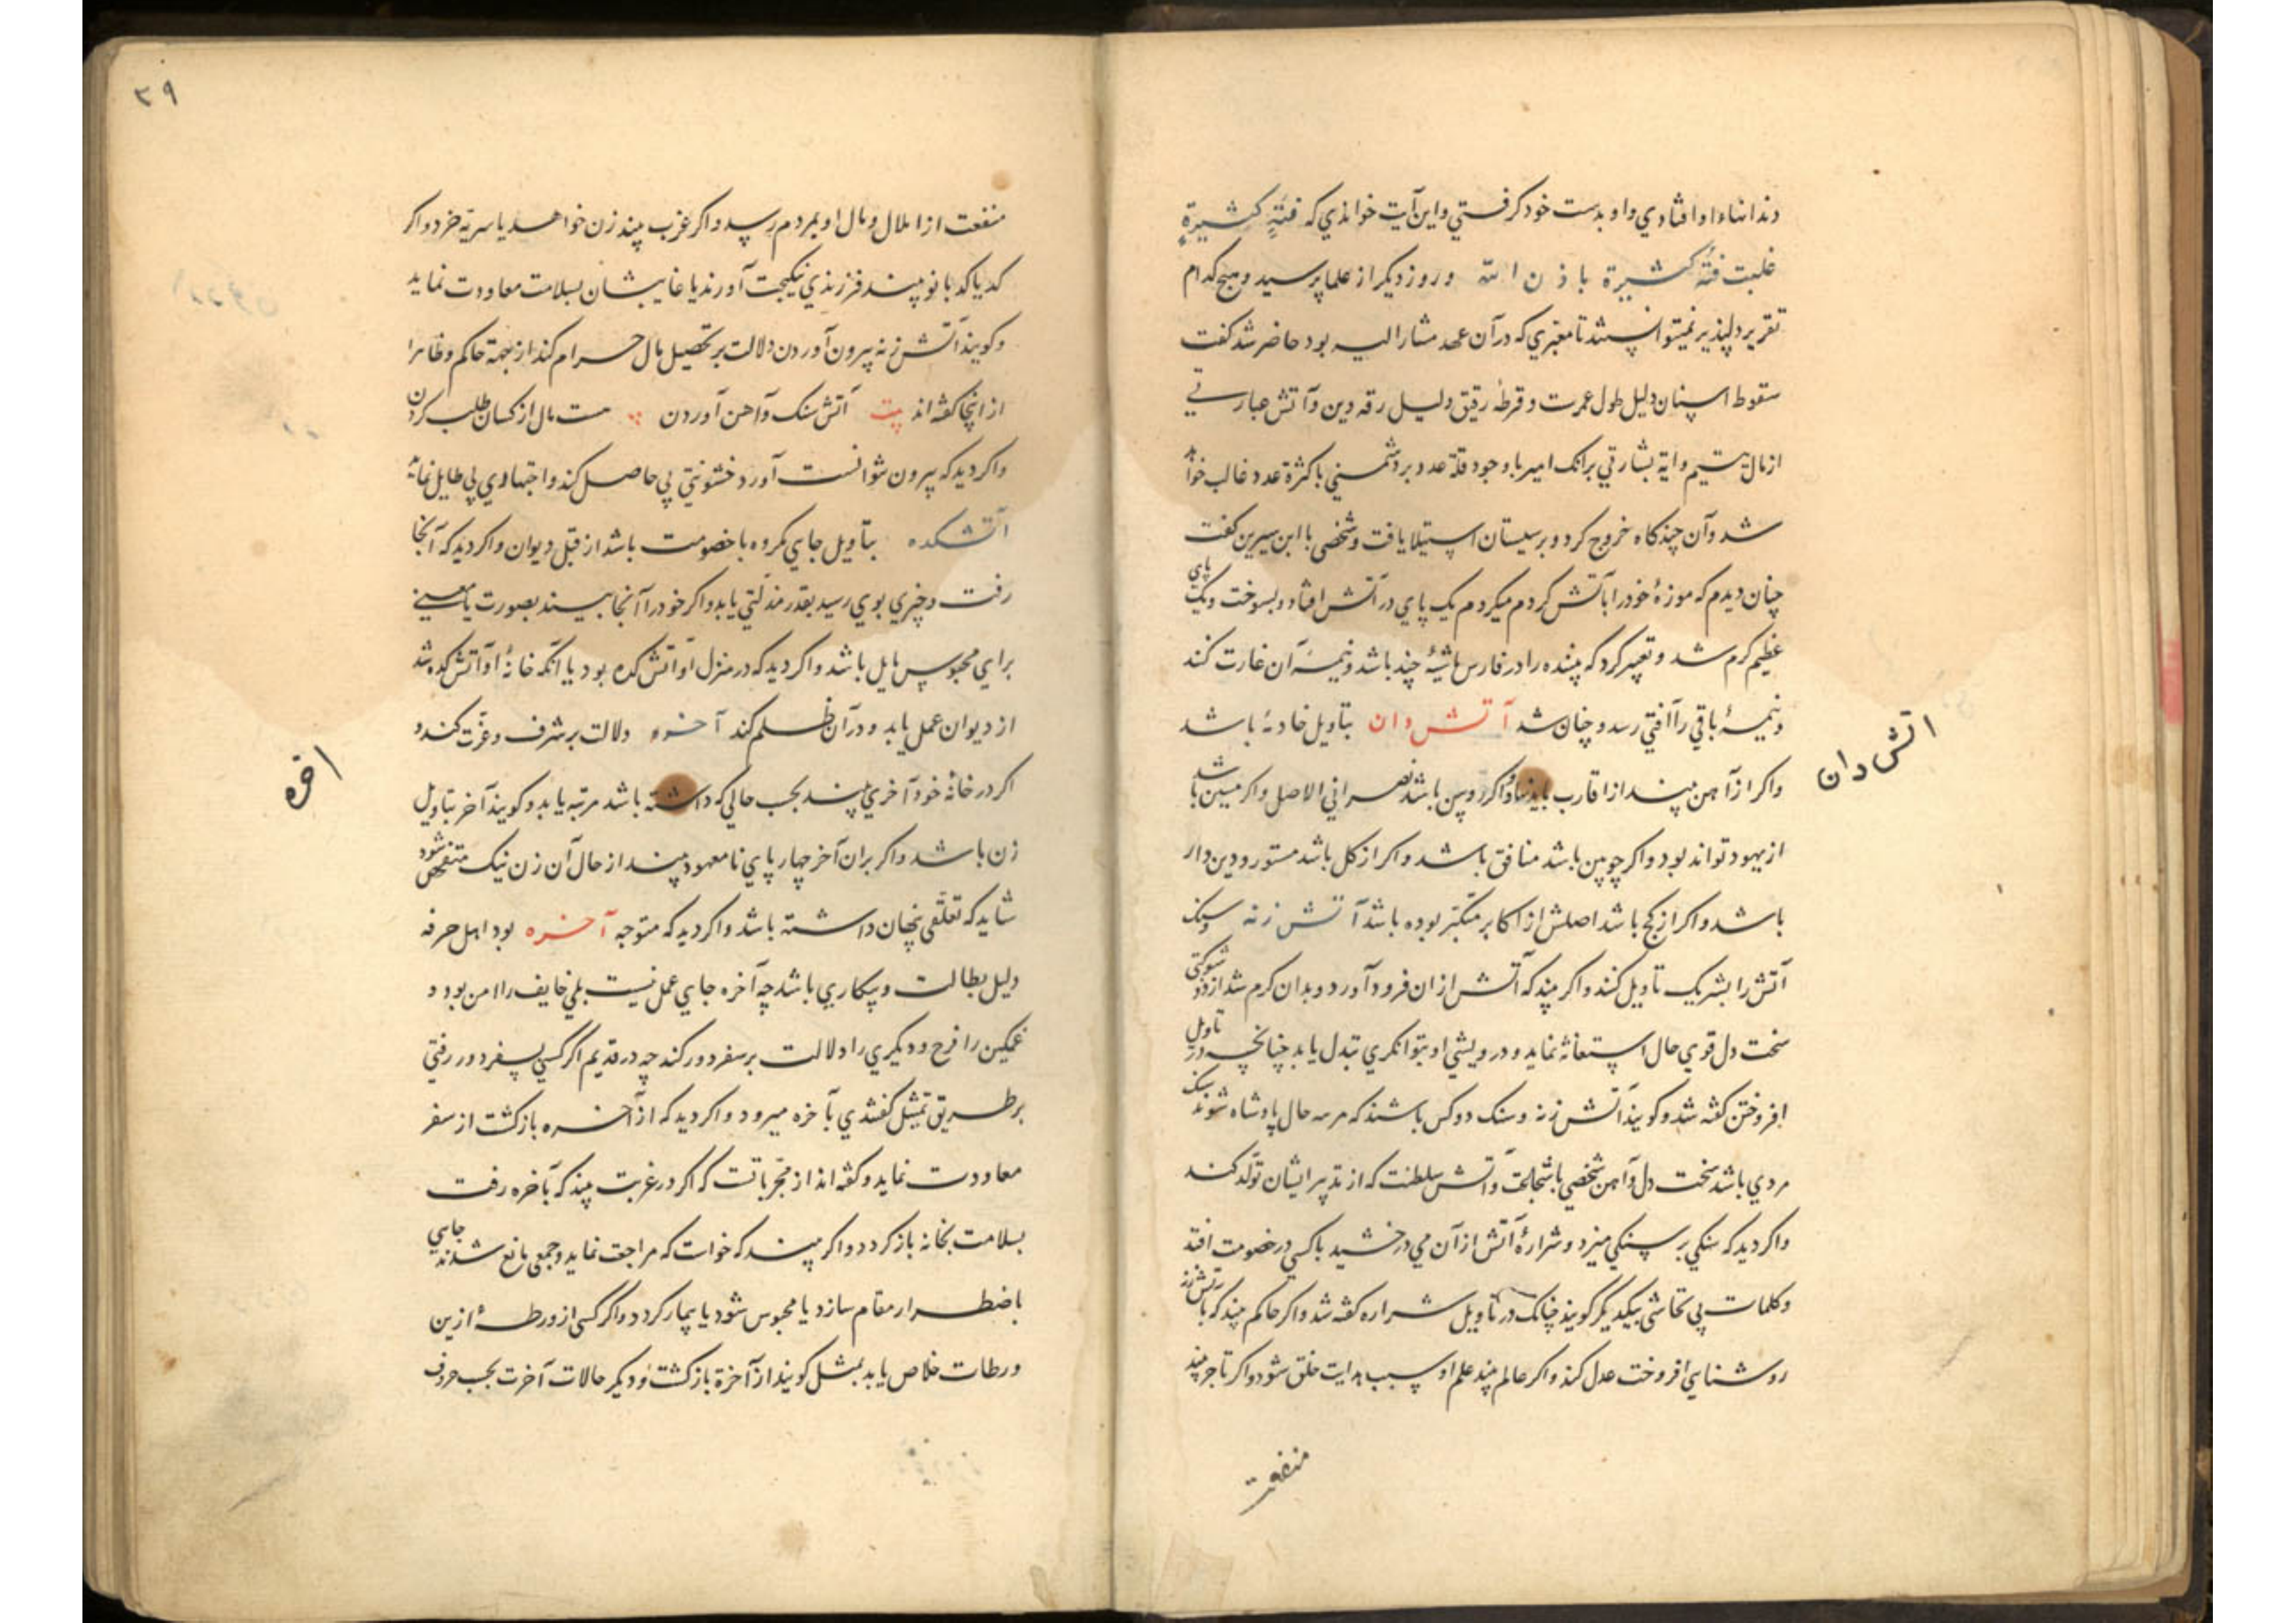 دندانهاء او افتادي و او بدست خود گرفتي و اين آيت خواندي كه فئةٍ كثيرةٍ
غلبت فئة كثيرة باذن الله و روز ديكر از علما پرسيد و هيچ كدام
تقرير دلپذير نميتوانستند تا معبري كه در آن عهد مشار اليه بود حاضر شد كفت
سقوط اسنان دليل طول عمرست و قرطهٔ رقيق دليل رقه دين و آتش عبارتي
از مال يتيم و آية بشارتي برانك امير با وجود قلة عدد بر دشمني با كثرة عدد غالب خواهد
شد و آن چندكاه خروج كرد و بر سيستان استيلا يافت و شخصي با ابن سيرين كفت
چنان ديدم كه موزهٔ خود را بآتش كرم ميكردم يك پاي در آتش افتاد و بسوخت و يك پاي
عظيم كرم شد و تعبير كرد كه بيننده را در فارس ماشيهٔ چند باشد و نيمهٔ آن غارت كند
و نيمهٔ باقي را آفتي رسد و چنان شد آتش دان بتأويل خادمهٔ باشد
اتش دان
و اكر از آهن بيند از اقارب باشد و اكر رويين باشد نصراني الاصل و اكر مسين باشد
از يهود تواند بود و اكر چوبين باشد منافق باشد و اكر از كل باشد مستور و دين دار
باشد و اكر از كچ باشد اصلش از اكابر متكبر بوده باشد آتش زنه و سنك
آتش را بشريك تأويل كنند و اكر بيند كه آتش از ان فرود آورد و بدان كرم شد از دو شوكتي
سخت دل قوي حال استعانة نمايد و درويشي او بتوانكري تبدل يابد چنانچه در تاويل
افروختن كفته شد و كويند آتش زنه و سنك دو كس باشند كه مرسه حال پادشاه شوند سنك
مردي باشد سخت دل و آهن شخصي باشجاعت و آتش سلطنت كه از تدبير ايشان تولد كند
و اكر ديد كه سنكي بر سنكي ميزد و شرارهٔ آتش از آن مي درخشيد با كسي در خصومت افتد
و كلمات بي تحاشي بيكديكر كويند چنانك در تأويل شراره كفته شد و اكر حاكم بيند كه با آتش زنه
روشنايي افروخت عدل كند و اكر عالم بيند علم او سبب هدايت خلق شود و اكر تاجر بيند
منفعت
٢٩
منفعت از املال و مال او بمردم رسد و اكر عزب بيند زن خواهد يا سريّة خرد و اكر
كديا كدبانو بيند فرزندي نيكبخت آورند يا غايبشان بسلامت معاودت نمايد
و كويند آتش زنه بيرون آوردن دلالت بر تحصيل مال حرام كند از جهة حاكم و ظاهرا
از اينجا كفته اند بيت آتش سنك و آهن آوردن هست مال از كسان طلب كردن
و اكر ديد كه بيرون نتوانست آورد خشونتي بي حاصل كند و اجتهادي بي طايل نمايد
آتشكده بتأويل جاي مكروه باخصومت باشد از قبل ديوان و اكر ديد كه آنجا
رفت و چيزي بوي رسيد بقدر مذلّتي يابد و اكر خود را آنجا بيند بصورت يا معيني
براي محبوس مايل باشد و اكر ديد كه در منزل او آتش كده بود يا آنكه خانهٔ او آتش كده شد
از ديوان عمل يابد و در آن ظلم كند آخره دلالت بر شرف و عزّت كند و
اخره
اكر در خانهٔ خود آخري بيند بحسب حالي كه داشته باشد مرتبه يابد و كويند آخر بتأويل
زن باشد و اكر بران آخر چهارپاي نامعهود بيند از حال آن زن نيك متفحص شود
شايد كه تعلّقي پنهان داشته باشد و اكر ديد كه متوجه آخره بود اهل حرفه
دليل بطالت و بيكاري باشد چه آخره جاي عمل نيست بلي خايف را امن بود و
غمكين را فرح و ديكري را دلالت بر سفر دور كند چه در قديم اكر كسي بسفر دور رفتي
بر طريق تمثيل كفتندي بآخره ميرود و اكر ديد كه از آخره باز كشت از سفر
معاودت نمايد و كفته اند از مجرباتست كه اكر در غربت بيند كه بآخره رفت
بسلامت بخانه باز كردد و اكر بيند كه خواست كه مراجعت نمايد و جمعي مانع شدند جايي
باضطرار مقام سازد يا محبوس شود يا بيمار كردد و اكر كسي از ورطهٔ ازين
ورطات خلاص يابد بمثل كويند از آخرة باز كشت و ديكر حالات آخرت بحسب حروف